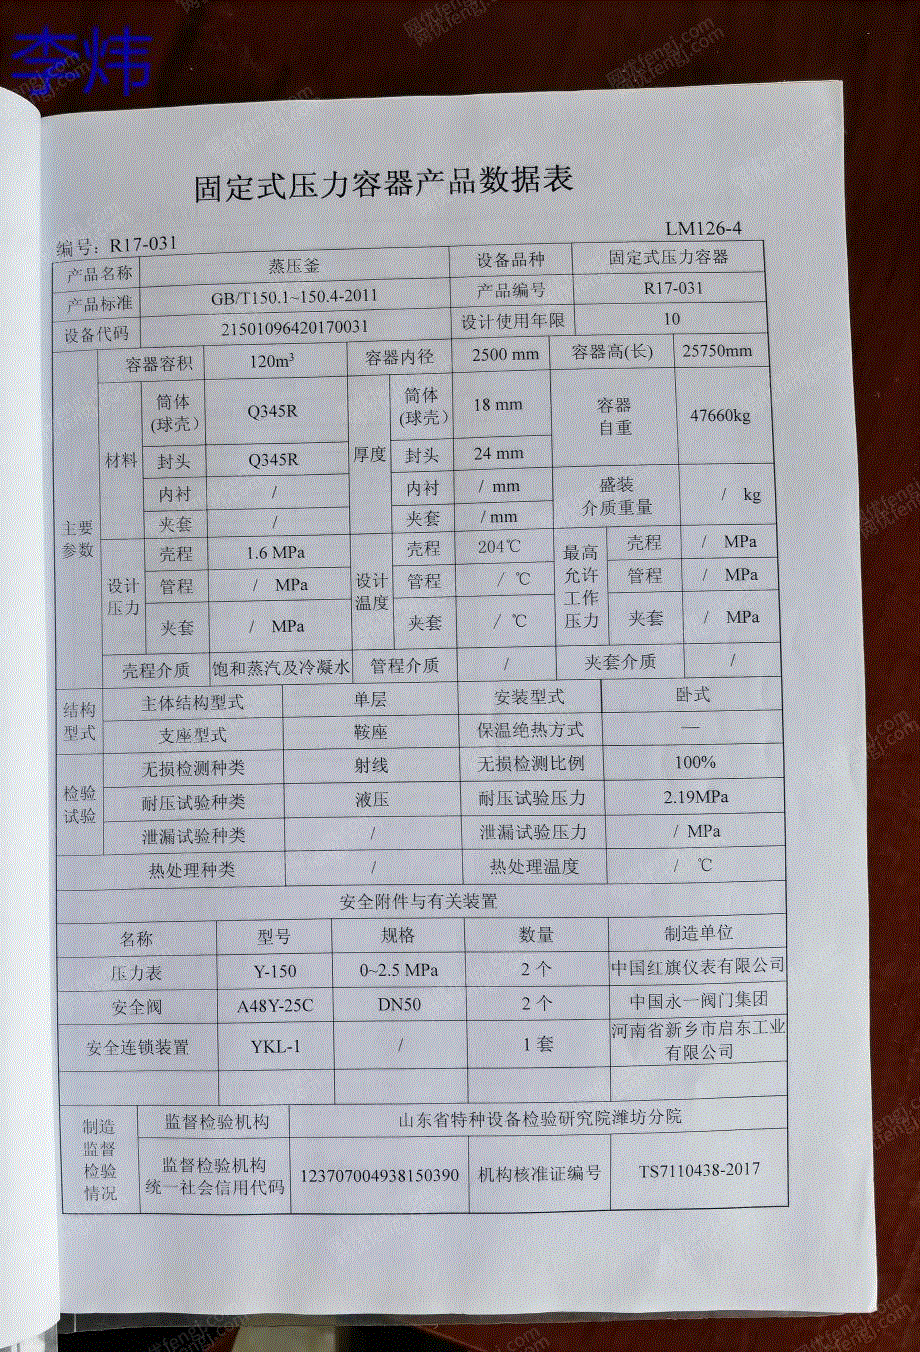 李炜
固定式压力容器产品数据表
编号: R17-031 LM126-4
产品名称 蒸压釜 设备品种 固定式压力容器
产品标准 GB/T150.1~150.4-2011 产品编号 R17-031
设备代码 21501096420170031 设计使用年限 10
主要参数
容器容积 120m³ 容器内径 2500 mm 容器高(长) 25750mm
材料 筒体(球壳) Q345R 厚度 筒体(球壳) 18 mm 容器自重 47660kg
封头 Q345R 封头 24 mm
内衬 / 内衬 / mm 盛装介质重量 / kg
夹套 / 夹套 / mm
设计压力 壳程 1.6 MPa 设计温度 壳程 204℃ 最高允许工作压力 壳程 / MPa
管程 / MPa 管程 / ℃ 管程 / MPa
夹套 / MPa 夹套 / ℃ 夹套 / MPa
壳程介质 饱和蒸汽及冷凝水 管程介质 / 夹套介质 /
结构型式 主体结构型式 单层 安装型式 卧式
支座型式 鞍座 保温绝热方式 —
检验试验 无损检测种类 射线 无损检测比例 100%
耐压试验种类 液压 耐压试验压力 2.19MPa
泄漏试验种类 / 泄漏试验压力 / MPa
热处理种类 / 热处理温度 / ℃
安全附件与有关装置
名称 型号 规格 数量 制造单位
压力表 Y-150 0~2.5 MPa 2 个 中国红旗仪表有限公司
安全阀 A48Y-25C DN50 2 个 中国永一阀门集团
安全连锁装置 YKL-1 / 1 套 河南省新乡市启东工业有限公司
制造监督检验情况 监督检验机构 山东省特种设备检验研究院潍坊分院
监督检验机构统一社会信用代码 123707004938150390 机构核准证编号 TS7110438-2017